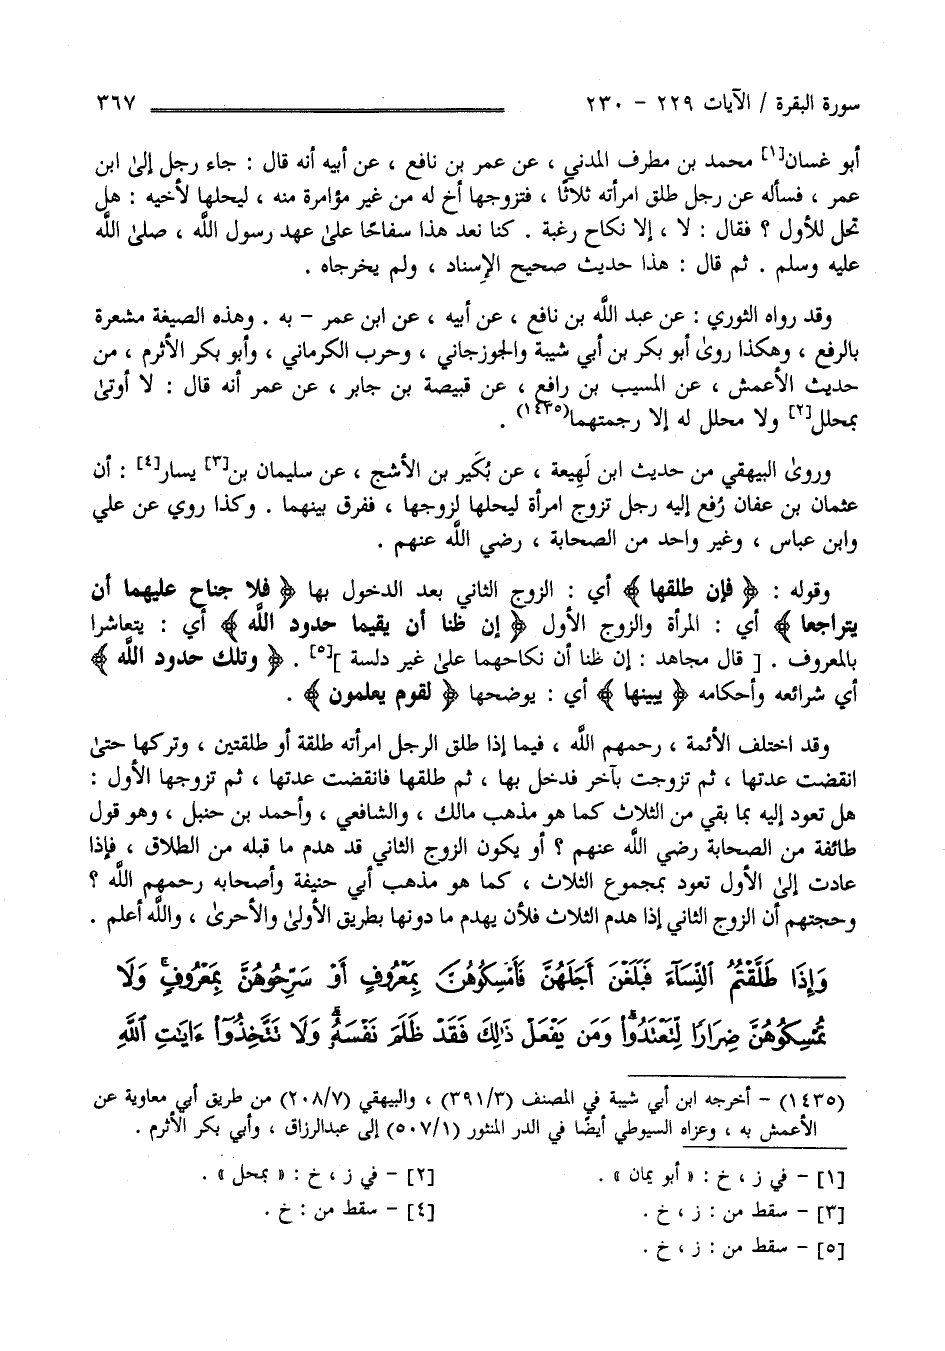 سورة البقرة / الآيات ٢٢٩ - ٢٣٠ ٣٦٧
أبو غسان[١] محمد بن مطرف المدني ، عن عمر بن نافع ، عن أبيه أنه قال : جاء رجل إلىٰ ابن
عمر ، فسأله عن رجل طلق امرأته ثلاثًا ، فتزوجها أخ له من غير مؤامرة منه ، ليحلها لأخيه : هل
تحل للأول ؟ فقال : لا ، إلا نكاح رغبة . كنا نعد هذا سفاحًا علىٰ عهد رسول اللَّه ، صلىٰ اللَّه
عليه وسلم . ثم قال : هذا حديث صحيح الإِسناد ، ولم يخرجاه .
وقد رواه الثوري : عن عبد اللَّه بن نافع ، عن أبيه ، عن ابن عمر - به . وهذه الصيغة مشعرة
بالرفع ، وهكذا روىٰ أبو بكر بن أبي شيبة والجوزجاني ، وحرب الكرماني ، وأبو بكر الأثرم ، من
حديث الأعمش ، عن المسيب بن رافع ، عن قبيصة بن جابر ، عن عمر أنه قال : لا أوتىٰ
بمحلل[٢] ولا محلل له إلا رجمتهما(١٤٣٥) .
وروىٰ البيهقي من حديث ابن لَهِيعة ، عن بُكَير بن الأشج ، عن سليمان بن[٣] يسار[٤] : أن
عثمان بن عفان رُفع إليه رجل تزوج امرأة ليحلها لزوجها ، ففرق بينهما . وكذا روي عن علي
وابن عباس ، وغير واحد من الصحابة ، رضي اللَّه عنهم .
وقوله : ﴿ فإن طلقها ﴾ أي : الزوج الثاني بعد الدخول بها ﴿ فلا جناح عليهما أن
يتراجعا ﴾ أي : المرأة والزوج الأول ﴿ إن ظنا أن يقيما حدود اللَّه ﴾ أي : يتعاشرا
بالمعروف . [ قال مجاهد : إن ظنا أن نكاحهما علىٰ غير دلسة ][٥] . ﴿ وتلك حدود اللَّه ﴾
أي شرائعه وأحكامه ﴿ يبينها ﴾ أي : يوضحها ﴿ لقوم يعلمون ﴾ .
وقد اختلف الأئمة ، رحمهم اللَّه ، فيما إذا طلق الرجل امرأته طلقة أو طلقتين ، وتركها حتىٰ
انقضت عدتها ، ثم تزوجت بآخر فدخل بها ، ثم طلقها فانقضت عدتها ، ثم تزوجها الأول :
هل تعود إليه بما بقي من الثلاث كما هو مذهب مالك ، والشافعي ، وأحمد بن حنبل ، وهو قول
طائفة من الصحابة رضي اللَّه عنهم ؟ أو يكون الزوج الثاني قد هدم ما قبله من الطلاق ، فإذا
عادت إلىٰ الأول تعود بمجموع الثلاث ، كما هو مذهب أبي حنيفة وأصحابه رحمهم اللَّه ؟
وحجتهم أن الزوج الثاني إذا هدم الثلاث فلأن يهدم ما دونها بطريق الأولىٰ والأحرىٰ ، واللَّه أعلم .
وَإِذَا طَلَّقْتُمُ ٱلنِّسَآءَ فَبَلَغْنَ أَجَلَهُنَّ فَأَمْسِكُوهُنَّ بِمَعْرُوفٍ أَوْ سَرِّحُوهُنَّ بِمَعْرُوفٍ ۚ وَلَا
تُمْسِكُوهُنَّ ضِرَارًا لِّتَعْتَدُوا۟ ۚ وَمَن يَفْعَلْ ذَٰلِكَ فَقَدْ ظَلَمَ نَفْسَهُۥ ۚ وَلَا تَتَّخِذُوٓا۟ ءَايَٰتِ ٱللَّهِ
(١٤٣٥) - أخرجه ابن أبي شيبة في المصنف (٣٩١/٣) ، والبيهقي (٢٠٨/٧) من طريق أبي معاوية عن
الأعمش به ، وعزاه السيوطي أيضًا في الدر المنثور (٥٠٧/١) إلى عبدالرزاق ، وأبي بكر الأثرم .
[١] - في ز ، خ : « أبو يمان » . [٢] - في ز ، خ : « بمحل » .
[٣] - سقط من : ز ، خ . [٤] - سقط من : خ .
[٥] - سقط من : ز ، خ .